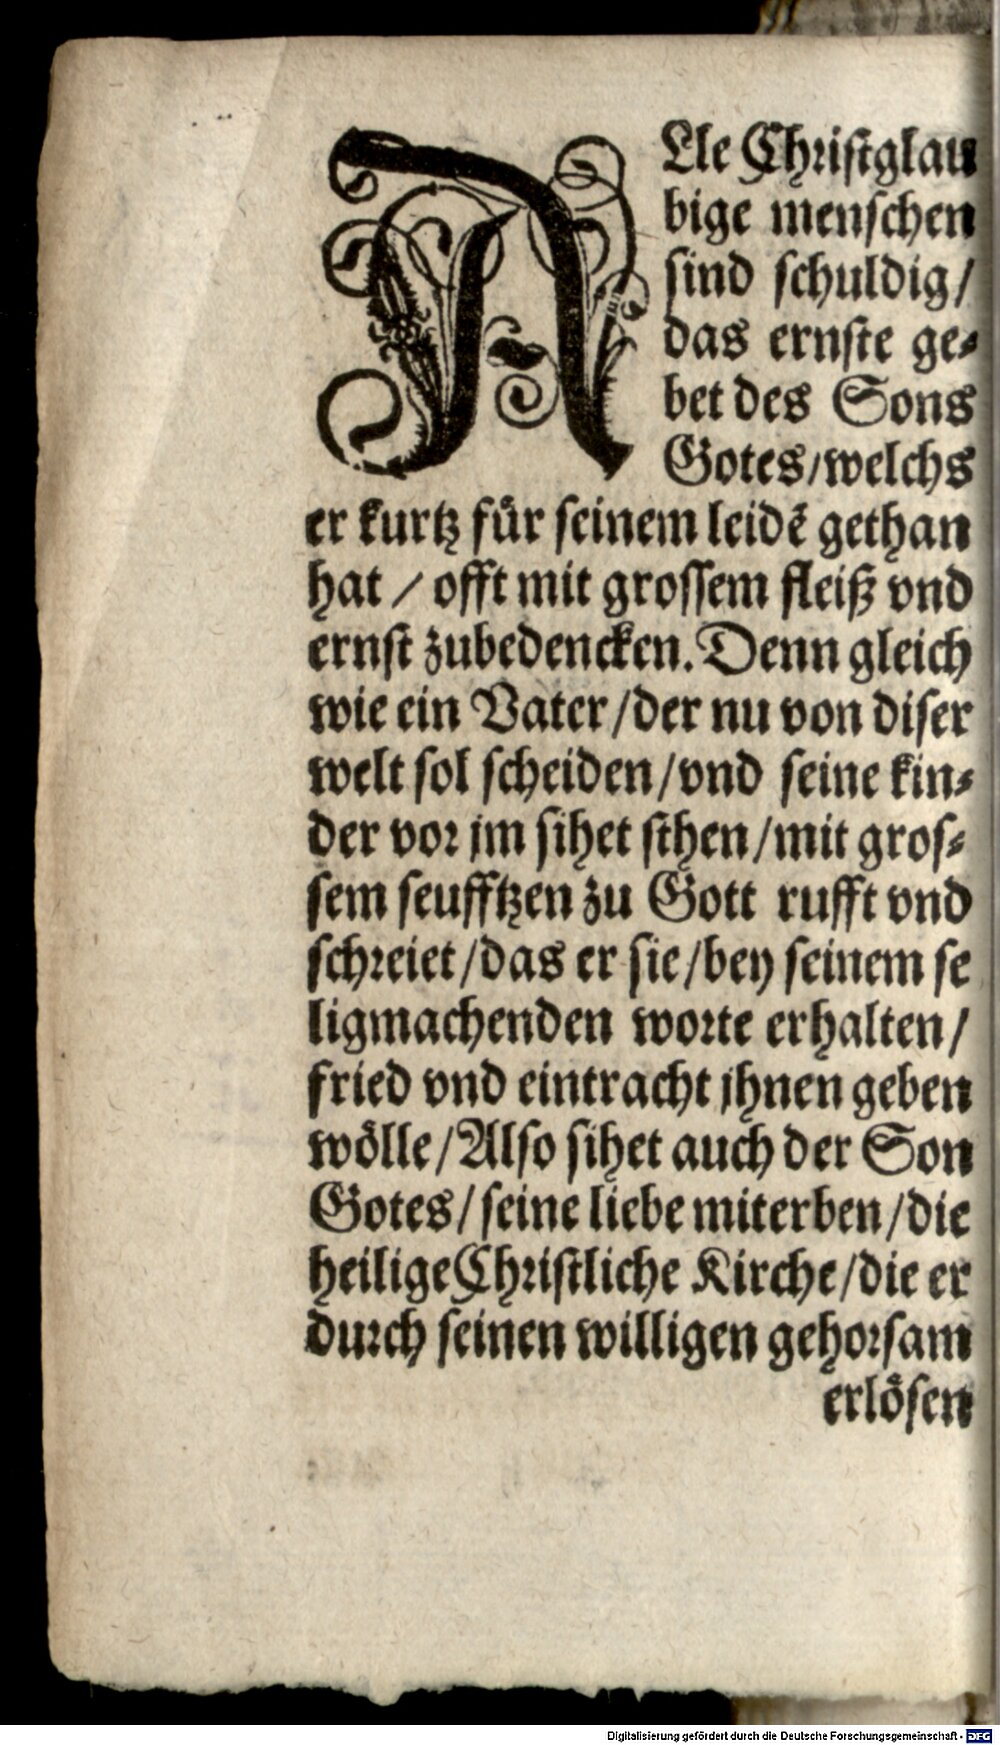 ALle Christglau
bige menschen
sind schuldig/
das ernste ge⸗
bet des Sons
Gotes/welchs
er kurtz für seinem leidẽ gethan
hat / offt mit grossem fleiß vnd
ernst zubedencken. Denn gleich
wie ein Vater/der nu von diser
welt sol scheiden/vnd seine kin⸗
der vor jm sihet sthen/mit gros⸗
sem seufftzen zu Gott rufft vnd
schreiet/das er sie/bey seinem se
ligmachenden worte erhalten/
fried vnd eintracht jhnen geben
wölle/Also sihet auch der Son
Gotes/seine liebe miterben/die
heilige Christliche Kirche/die er
durch seinen willigen gehorsam
erlösen
Digitalisierung gefördert durch die Deutsche Forschungsgemeinschaft - DFG